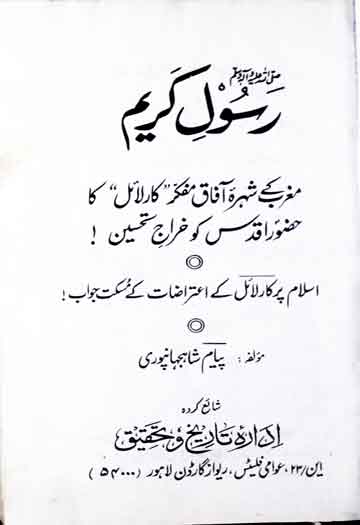 صلی اللہ علیہ وآلہ وسلم
رسُولِ کریم
مغرب کے شہرۂ آفاق مفکر "کارلائل" کا
حضورِ اقدس کو خراجِ تحسین !
اسلام پر کارلائل کے اعتراضات کے مُسکت جواب !
مؤلفہ : پیام شاہجہانپوری
شائع کردہ
ادارہ تاریخ و تحقیق
این/۲۳، عوامی فلیٹس، ریواز گارڈن لاہور (۵۴۰۰۰)